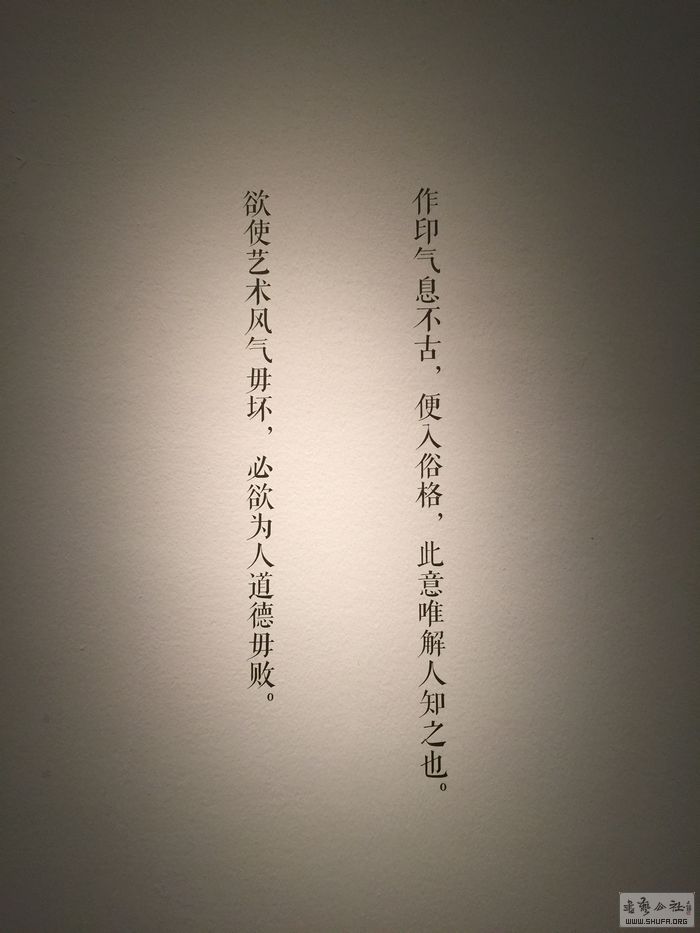 作印气息不古，便入俗格，此意唯解人知之也。
欲使艺术风气毋坏，必欲为人道德毋败。
WWW.SHUFA.ORG